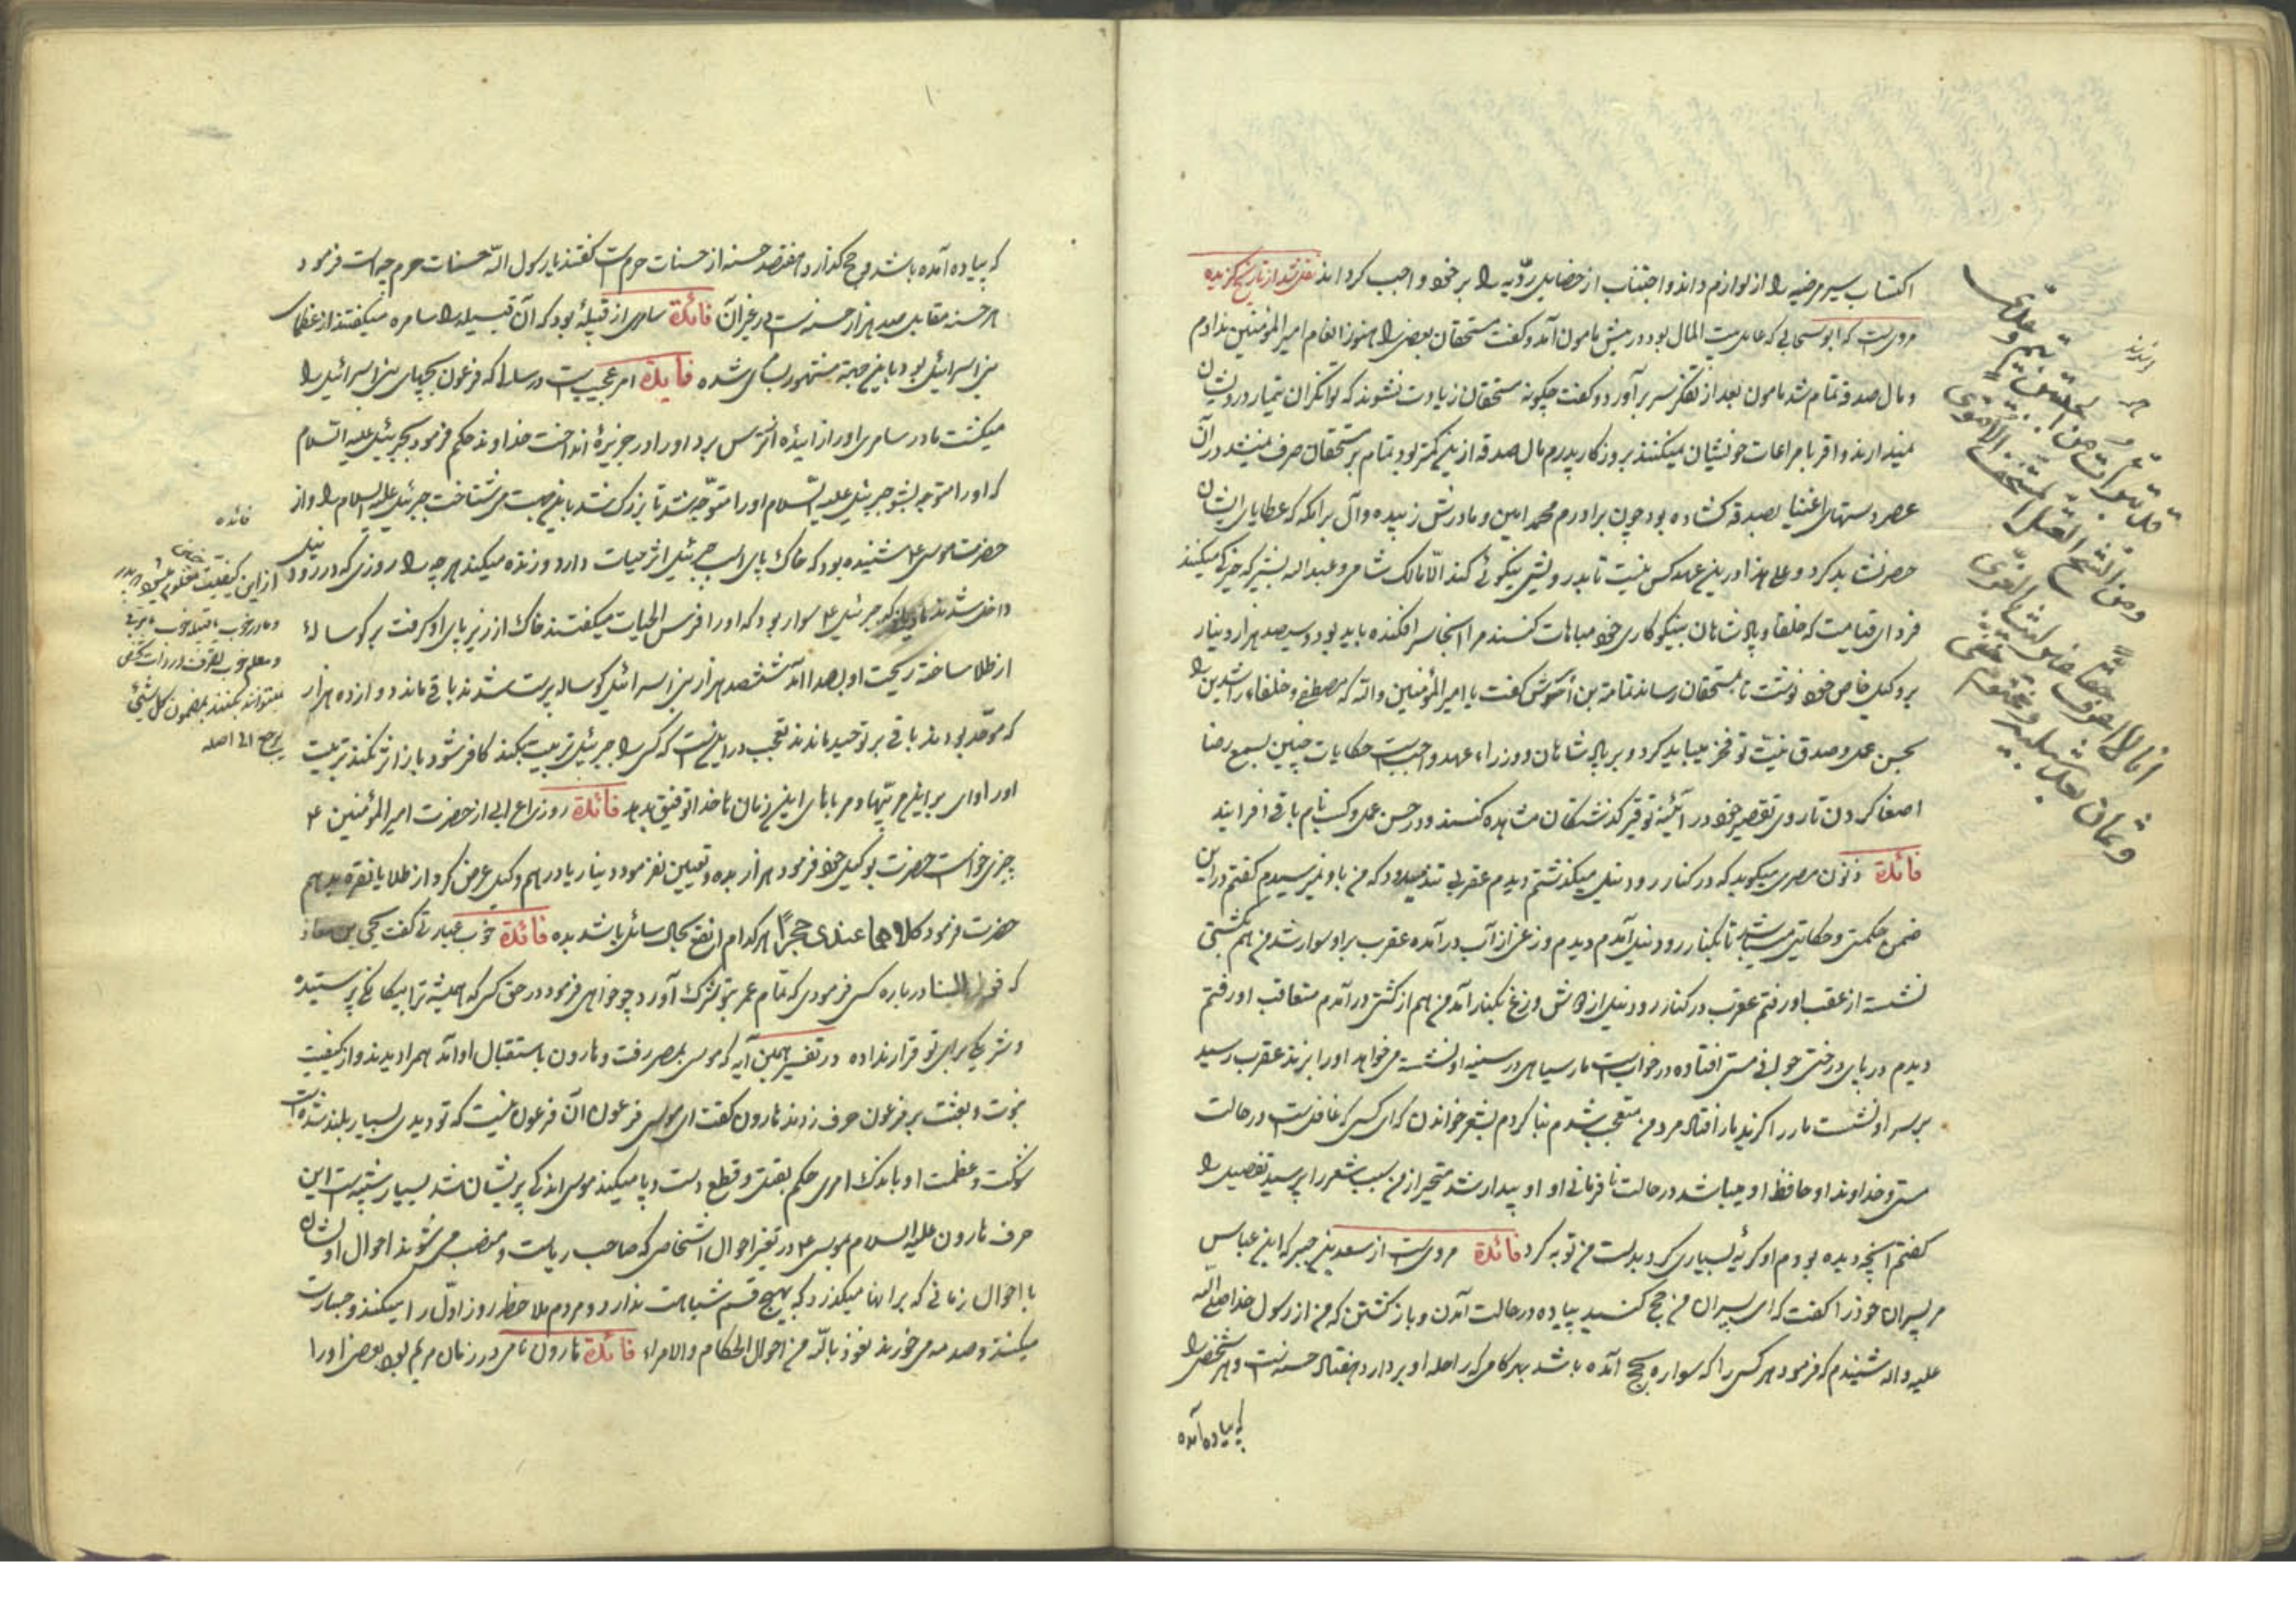 اکتساب سیر مرضیه را از لوازم داند و اجتناب از خصایل ردّیه را بر خود واجب کرداند نقل شد از تاریخ گزیده
مرویست که ابو سحابی که عامل بیت المال بود در پیش مامون آمد و کفت مستحقان بعضی را هنوز انعام امیر المؤمنین ندادم
و مال صدقه تمام شد مامون بعد از تفکر سر برآورد و کفت چکونه مستحقان زیادت نشوند که توانکران تیمار درویشان
نمیدارند و اقربا مراعات خویشان نمیکنند بروزکار پدرم مال صدقه ازین کمتر بود تمام بر مستحقان صرف نمیشد در آن
عصر دستهای اغنیا بصدقه کشاده بود چون برادرم محمد امین و مادرش زبیده و آل برامکه که عطایای ایشان
حصر نشاید کرد و علی هذا درین عهد کس نیست تا بدرویش نیکوئی کند الّا مالک شامی و عبداله بشیر که خیرکی میکنند
فردای قیامت که خلفا و پادشاهان بنیکوکاری خود مباهات کنند مرا آنجا سر افکنده باید بود و سیصد هزار دینار
بر وکیل خاص خود نوشت تا بمستحقان رساند ثمامة بن اشرس کفت یا امیر المؤمنین والله که مصطفی و خلفاء راشدین را
بحسن عمل و صدق نیّت تو فخر میباید کرد و بر پادشاهان و وزراء عهد واجبست حکایات چنین بسمع رضا
اصغا کردن تا روی تقصیر خود در آئینه توقیر کذشتکان مشاهده کنند و در حسن عمل و کسب نام باقی افزایند
فائدة ذنون مصری میکوید که در کنار رود نیل میکذشتم دیدم عقربی تند میرود که من باو نمیرسیدم کفتم در این
ضمن حکمتی و حکایتی میباشد تا بکنار رود نیل آمدم دیدم وزغی از آب در آمده عقرب بر او سوار شد من هم بکشتی
نشسته از عقب او رفتم عقرب در کنار رود نیل از دوش وزغ بکنار آمد من هم از کشتی در آمدم متعاقب او رفتم
دیدم در پای درختی جوانی مستی افتاده در خوابست مار سیاهی در سینه او نشسته میخواهد او را بزند عقرب رسید
بر سر او نشست مار را کزید مار افتاد مرد من متعجب شدم بنا کردم بشعر خواندن که ای کسی که غافلست در حالت
مستی و خداوند او حافظ او میباشد در حالت نافرمانی او او بیدار شد متحیر از من سبب شعر را پرسید تفصیل را
کفتم آنچه دیده بودم او کریه بسیاری کرد بدست من توبه کرد فائدة مرویست از سعد بن جبیر که ابن عباس
مر پسران خود را کفت که ای پسران من حج کنید پیاده در حالت آمدن و باز کشتن که من از رسول خدا صلی الله
علیه و اله شنیدم که فرمود هر کس را که سواره بحج آمده باشد بهر کامی که راحله او بردارد هفتاد حسنه است و هر شخصی را
که پیاده آمده
که پیاده آمده باشد بحج کذارد هفتصد حسنه از حسنات حرمست کفتند یا رسول الله حسنات حرم چه است فرمود
هر حسنه مقابل صد هزار حسنه است در غیر آن فائدة سامری از قبیلهٔ بود که آن قبیله را سامره میکفتند از عظمای
بنی اسرائیل بود باین جهة مشهور بسامری شده فایدة امر عجیبیست در سالی که فرعون بچهای بنی اسرائیل را
میکشت مادر سامری او را زائیده از ترس برد او را در جزیرهٔ انداخت خداوند حکم فرمود بجبرئیل علیه السلام
که او را متوجه بشو جبرئیل علیه السلام او را متوجّه شد تا بزرک شد باین جهت میشناخت جبرئیل علیه السلام را و از
حضرت موسی ع شنیده بود که خاک پای اسب جبرئیل اثر حیات دارد و زنده میکند هر چه را روزی که در رود نیل
داخل شدند جبرئیل ع سوار بود که او را فرس الحیات میکفتند خاک از زیر پای او کرفت بر کوسالهٔ
از طلا ساخته ریخت او بصدا آمد ششصد هزار بنی اسرائیل کوساله پرست شدند باقی ماند دوازده هزار
که موحّد بودند باقی بر توحید ماندند تعجب در اینست که کسی را جبرئیل تربیت بکند کافر شود باز اثر نکند تربیت
او را وای بر این مربّیها و مرباهای این زمان تا خدا توفیق بدهد فائدة روزی اعرابی از حضرت امیر المؤمنین ع
چیزی خواست حضرت بوکیل خود فرمود هزار بده و تعیین نفرمود دینار یا درهم وکیل عرض کرد از طلا یا نقره بدهم
حضرت فرمود کلاهما عندی حجرًا هر کدام انفع بحال سائل باشد بده فائدة خوب عبارتی کفت یحیی بن معاذ
که درباره کسی فرمودی که تمام عمر بتو شرک آورد چو خواهی فرمود در حق کسی که همیشه ترا بیکانکی پرستیده
و شریکی برای تو قرار نداده در تفسیر همین آیه که موسی بمصر رفت و هارون باستقبال او آمد همرا دیدند و از کیفیت
نبوت و بعثت بر فرعون حرف زدند هارون کفت ای موسی فرعون آن فرعون نیست که تو دیدی بسیار بلند شده است
شوکت و عظمت او باندک امری حکم بقتل و قطع دست و پا میکند موسی اندکی پریشان شد بسیار شبیه است این
حرف هارون علیه السلام بموسی ع در تغیر احوال اشخاصی که صاحب ریاست و منصب میشوند احوال اوشان
با احوال زمانی که بر انها میکذرد که بهیچ قسم شباهت ندارد و مردم ملاحظه روز اوّل را میکنند و جسارت
میکنند و صدمه میخورند نعوذ بالله من احوال الحکام و الامراء فائدة هارون نامی در زمان مریم بود بعضی او را
فائده
از این کیفیت معلوم میشود چنین پدر
و مادر خوب قبیله خوب
و معلم خوب
نمیتوانند بکنند بمضمون کل شیئ
یرجع الی اصله